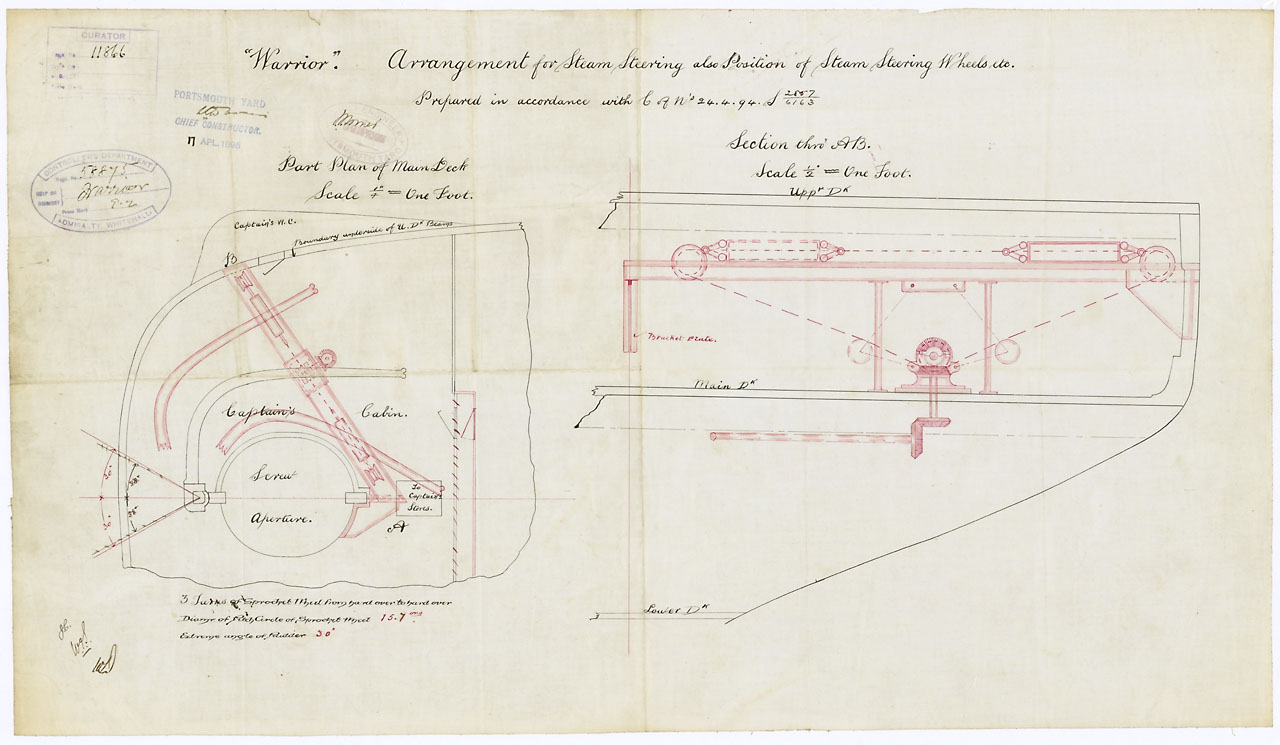 CURATOR
11866
"Warrior".   Arrangement for Steam Steering also Position of Steam Steering Wheels, etc.
Prepared in accordance with C of N's 24.4.94. S 2857/6163
PORTSMOUTH YARD
CHIEF CONSTRUCTOR.
APL. 1895
CONTROLLER'S DEPARTMENT
58875
Warrior
ADMIRALTY, WHITEHALL
Part Plan of Main Deck
Scale = One Foot.
Section thro' AB.
Scale ½" = One Foot.
Uppr Dk
Captain's W.C.
Boundary underside of U. Dk Beams
B
Bracket Plate.
Main Dk
Captain's Cabin.
Screw
Aperture.
To
Captain's
Stores.
A
30°
38°
38°
30°
3 Turns of Sprocket Wheel from hard over to hard over
Diamr of Pitch Circle of Sprocket Wheel 15.7 ins
Extreme angle of Rudder 30°
Lower Dk